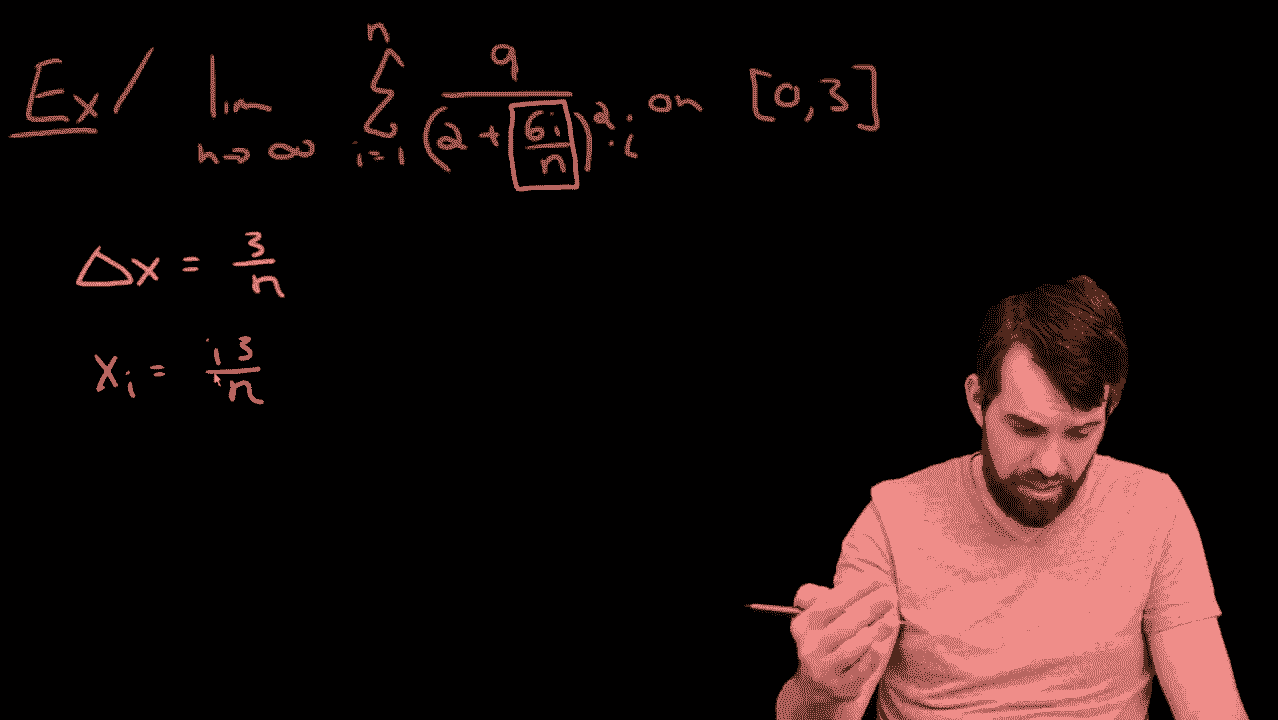 Ex/ lim n→∞ n Σ i=1 9/(2 + 6i/n)²·i on [0,3]
Δx = 3/n
xᵢ = i 3/n